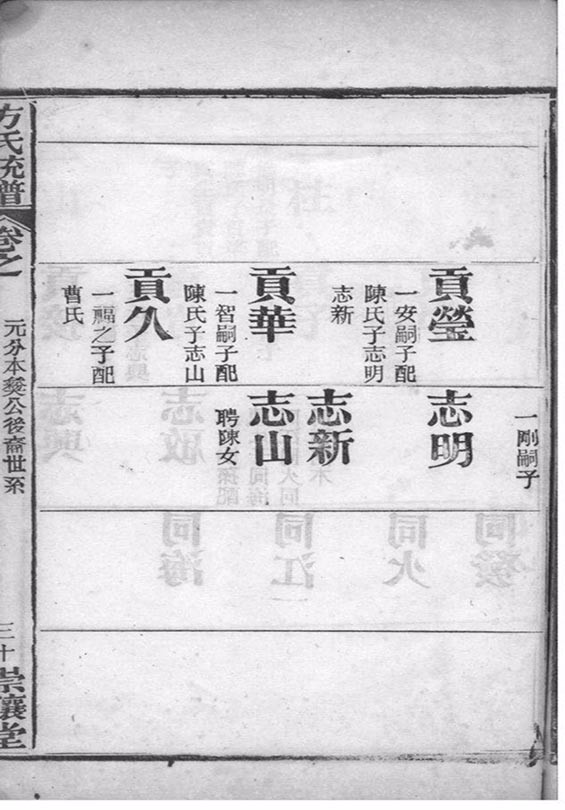 貢瑩
一安嗣子配
陳氏子志明
志新
貢華
一智嗣子配
陳氏子志山
貢久
一福之子配
曹氏
一剛嗣子
志明
志新
志山
聘陳女
方氏統譜
卷之
元分本發公後裔世系
三十
崇讓堂